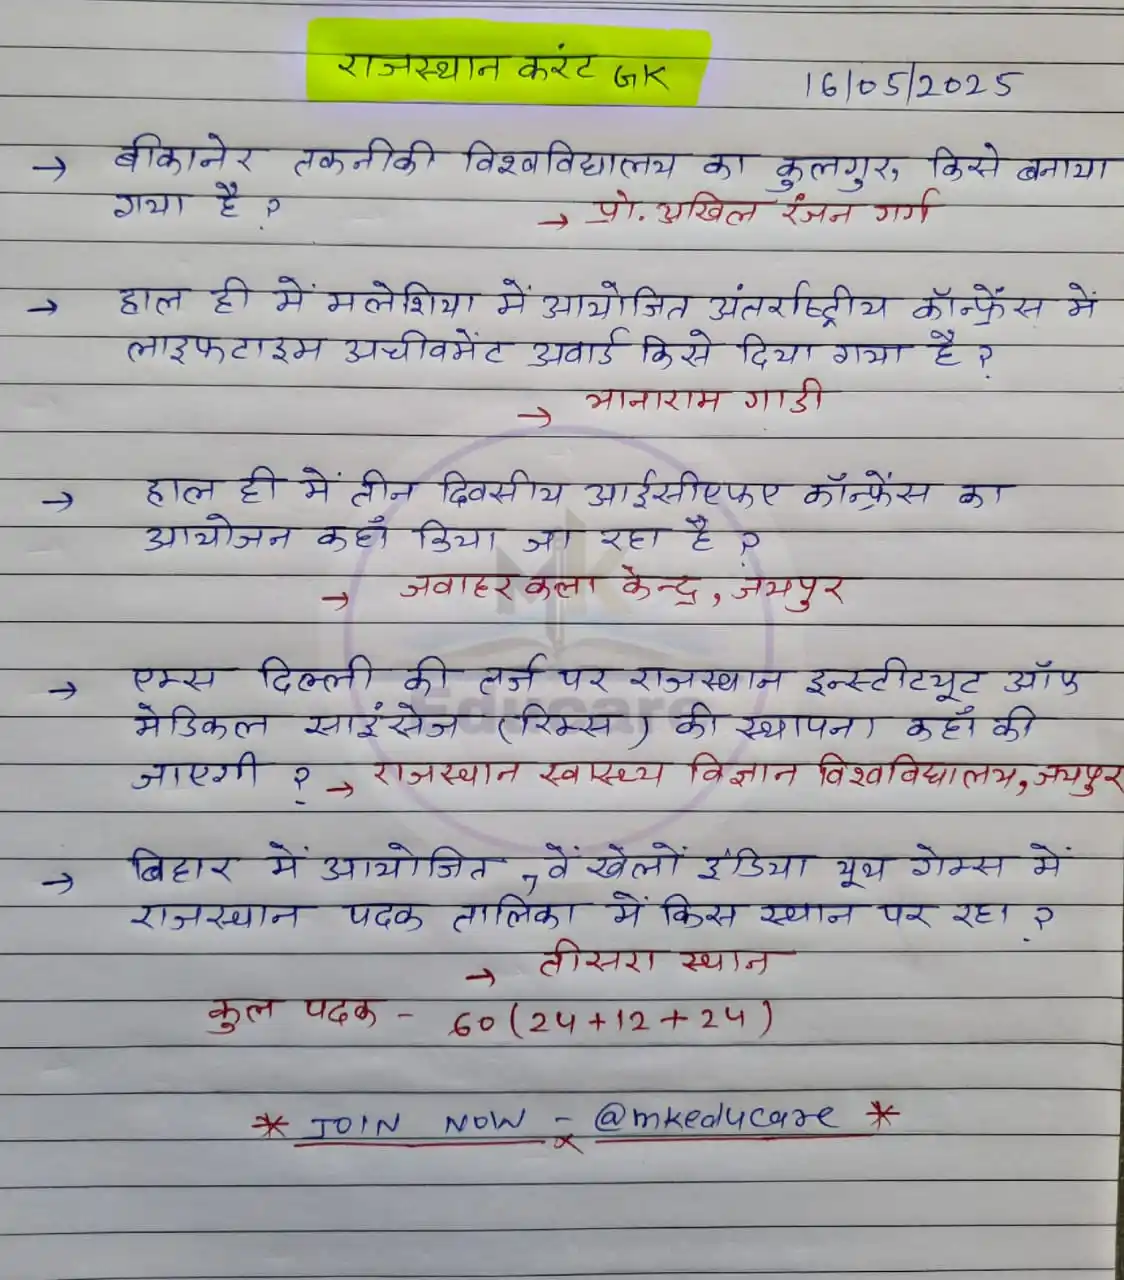 राजस्थान करंट GK 16/05/2025
→ बीकानेर तकनीकी विश्वविद्यालय का कुलगुरु किसे बनाया
गया है ?
→ प्रो. अखिल रंजन गर्ग
→ हाल ही में मलेशिया में आयोजित अंतर्राष्ट्रीय कॉन्फ्रेंस में
लाइफटाइम अचीवमेंट अवार्ड किसे दिया गया है ?
→ भानाराम गाडी
→ हाल ही में तीन दिवसीय आईसीएफए कॉन्फ्रेंस का
आयोजन कहाँ किया जा रहा है ?
→ जवाहर कला केन्द्र, जयपुर
→ एम्स दिल्ली की तर्ज पर राजस्थान इन्स्टीट्यूट ऑफ
मेडिकल साइंसेज (रिम्स) की स्थापना कहाँ की
जाएगी ? → राजस्थान स्वास्थ्य विज्ञान विश्वविद्यालय, जयपुर
→ बिहार में आयोजित 7वें खेलों इंडिया यूथ गेम्स में
राजस्थान पदक तालिका में किस स्थान पर रहा ?
→ तीसरा स्थान
कुल पदक - 60 (24+12+24)
* JOIN NOW - @mkeducare *
MK
Educare